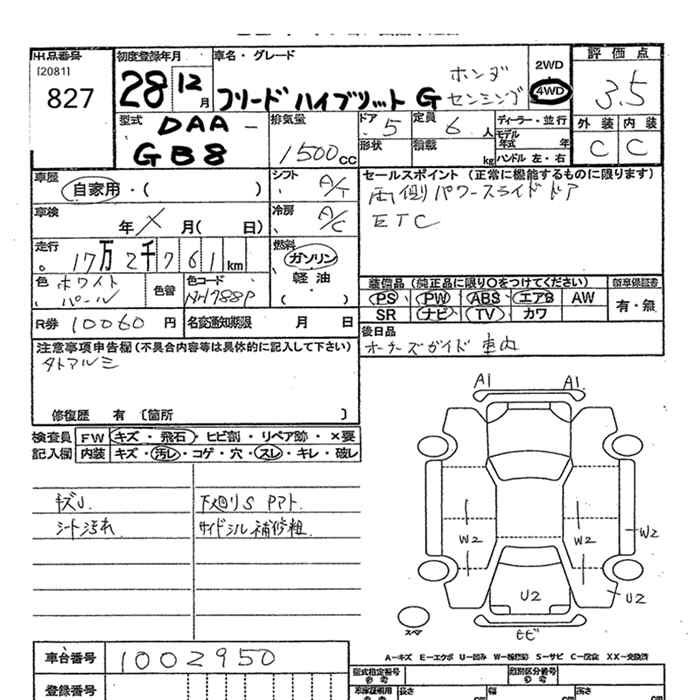 出品番号
[2081]
827
初度登録年月
28 12月
車名・グレード
フリードハイブリット G ホンダ
センシング
2WD
4WD
評価点
3.5
外装 内装
C C
型式
DAA-
GB8
排気量
1500cc
ドア 5
定員 6人
形状
積載 kg
ディーラー・並行
モデル
年式 年
ハンドル 左・右
車歴
自家用・( )
シフト A/T
セールスポイント (正常に機能するものに限ります)
両側パワースライドドア
ETC
車検 年 月( 日)
冷房 A/C
走行
17万2千761km
燃料
ガソリン
軽油
( )
色 ホワイト
パール
色替
色コード
NH788P
装備品 (純正品に限り○をつけてください)
PS PW ABS エアB AW
SR ナビ TV カワ
新車保証書
有・無
R券 10060円
名変通知期限 月 日
後日品
注意事項申告欄(不具合内容等は具体的に記入して下さい)
修復歴 有 〔箇所 〕
車内
検査員
記入欄
FW キズ・飛石・ヒビ割・リペア跡・×要
内装 キズ・汚レ・コゲ・穴・スレ・キレ・破レ
シート汚れ
下廻りS
サイドシル補修粗
A1 A1
W2 W2 W2
U2 U2
スペア
A-キズ E-エクボ U-凹み W-補修跡 S-サビ C-腐食 XX-交換済
車台番号 1002950
登録番号
型式指定番号
類別区分番号
長さ 幅 高さ
cm cm cm